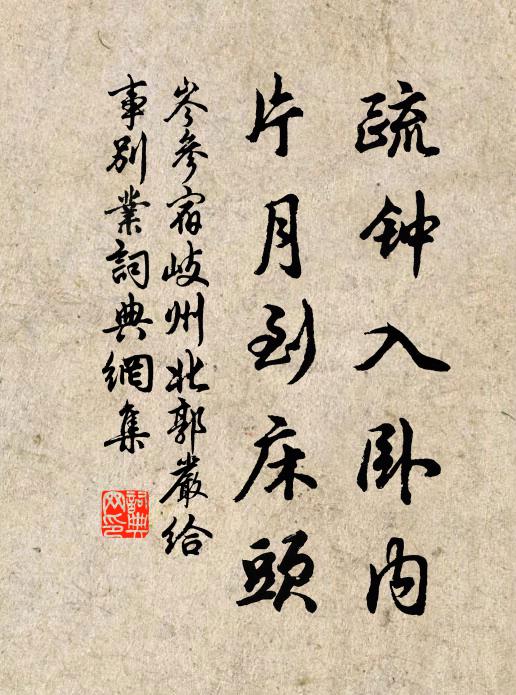 疏钟入卧内
片月到床頭
岑參宿岐州北郭嚴给
事别業詞典網集
詞典
网印